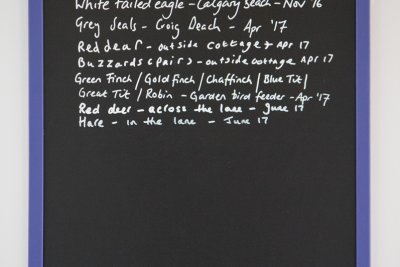 White tailed eagle - Calgary Beach - Nov 16
Grey Seals - Croig Beach - Apr '17
Red dear - outside cottage - Apr 17
Buzzards (Pair) - outside cottage Apr 17
Green Finch / Goldfinch / Chaffinch / Blue Tit /
Great Tit / Robin - Garden bird feeder - Apr '17
Red deer - across the lane - June 17
Hare - in the lane - June 17